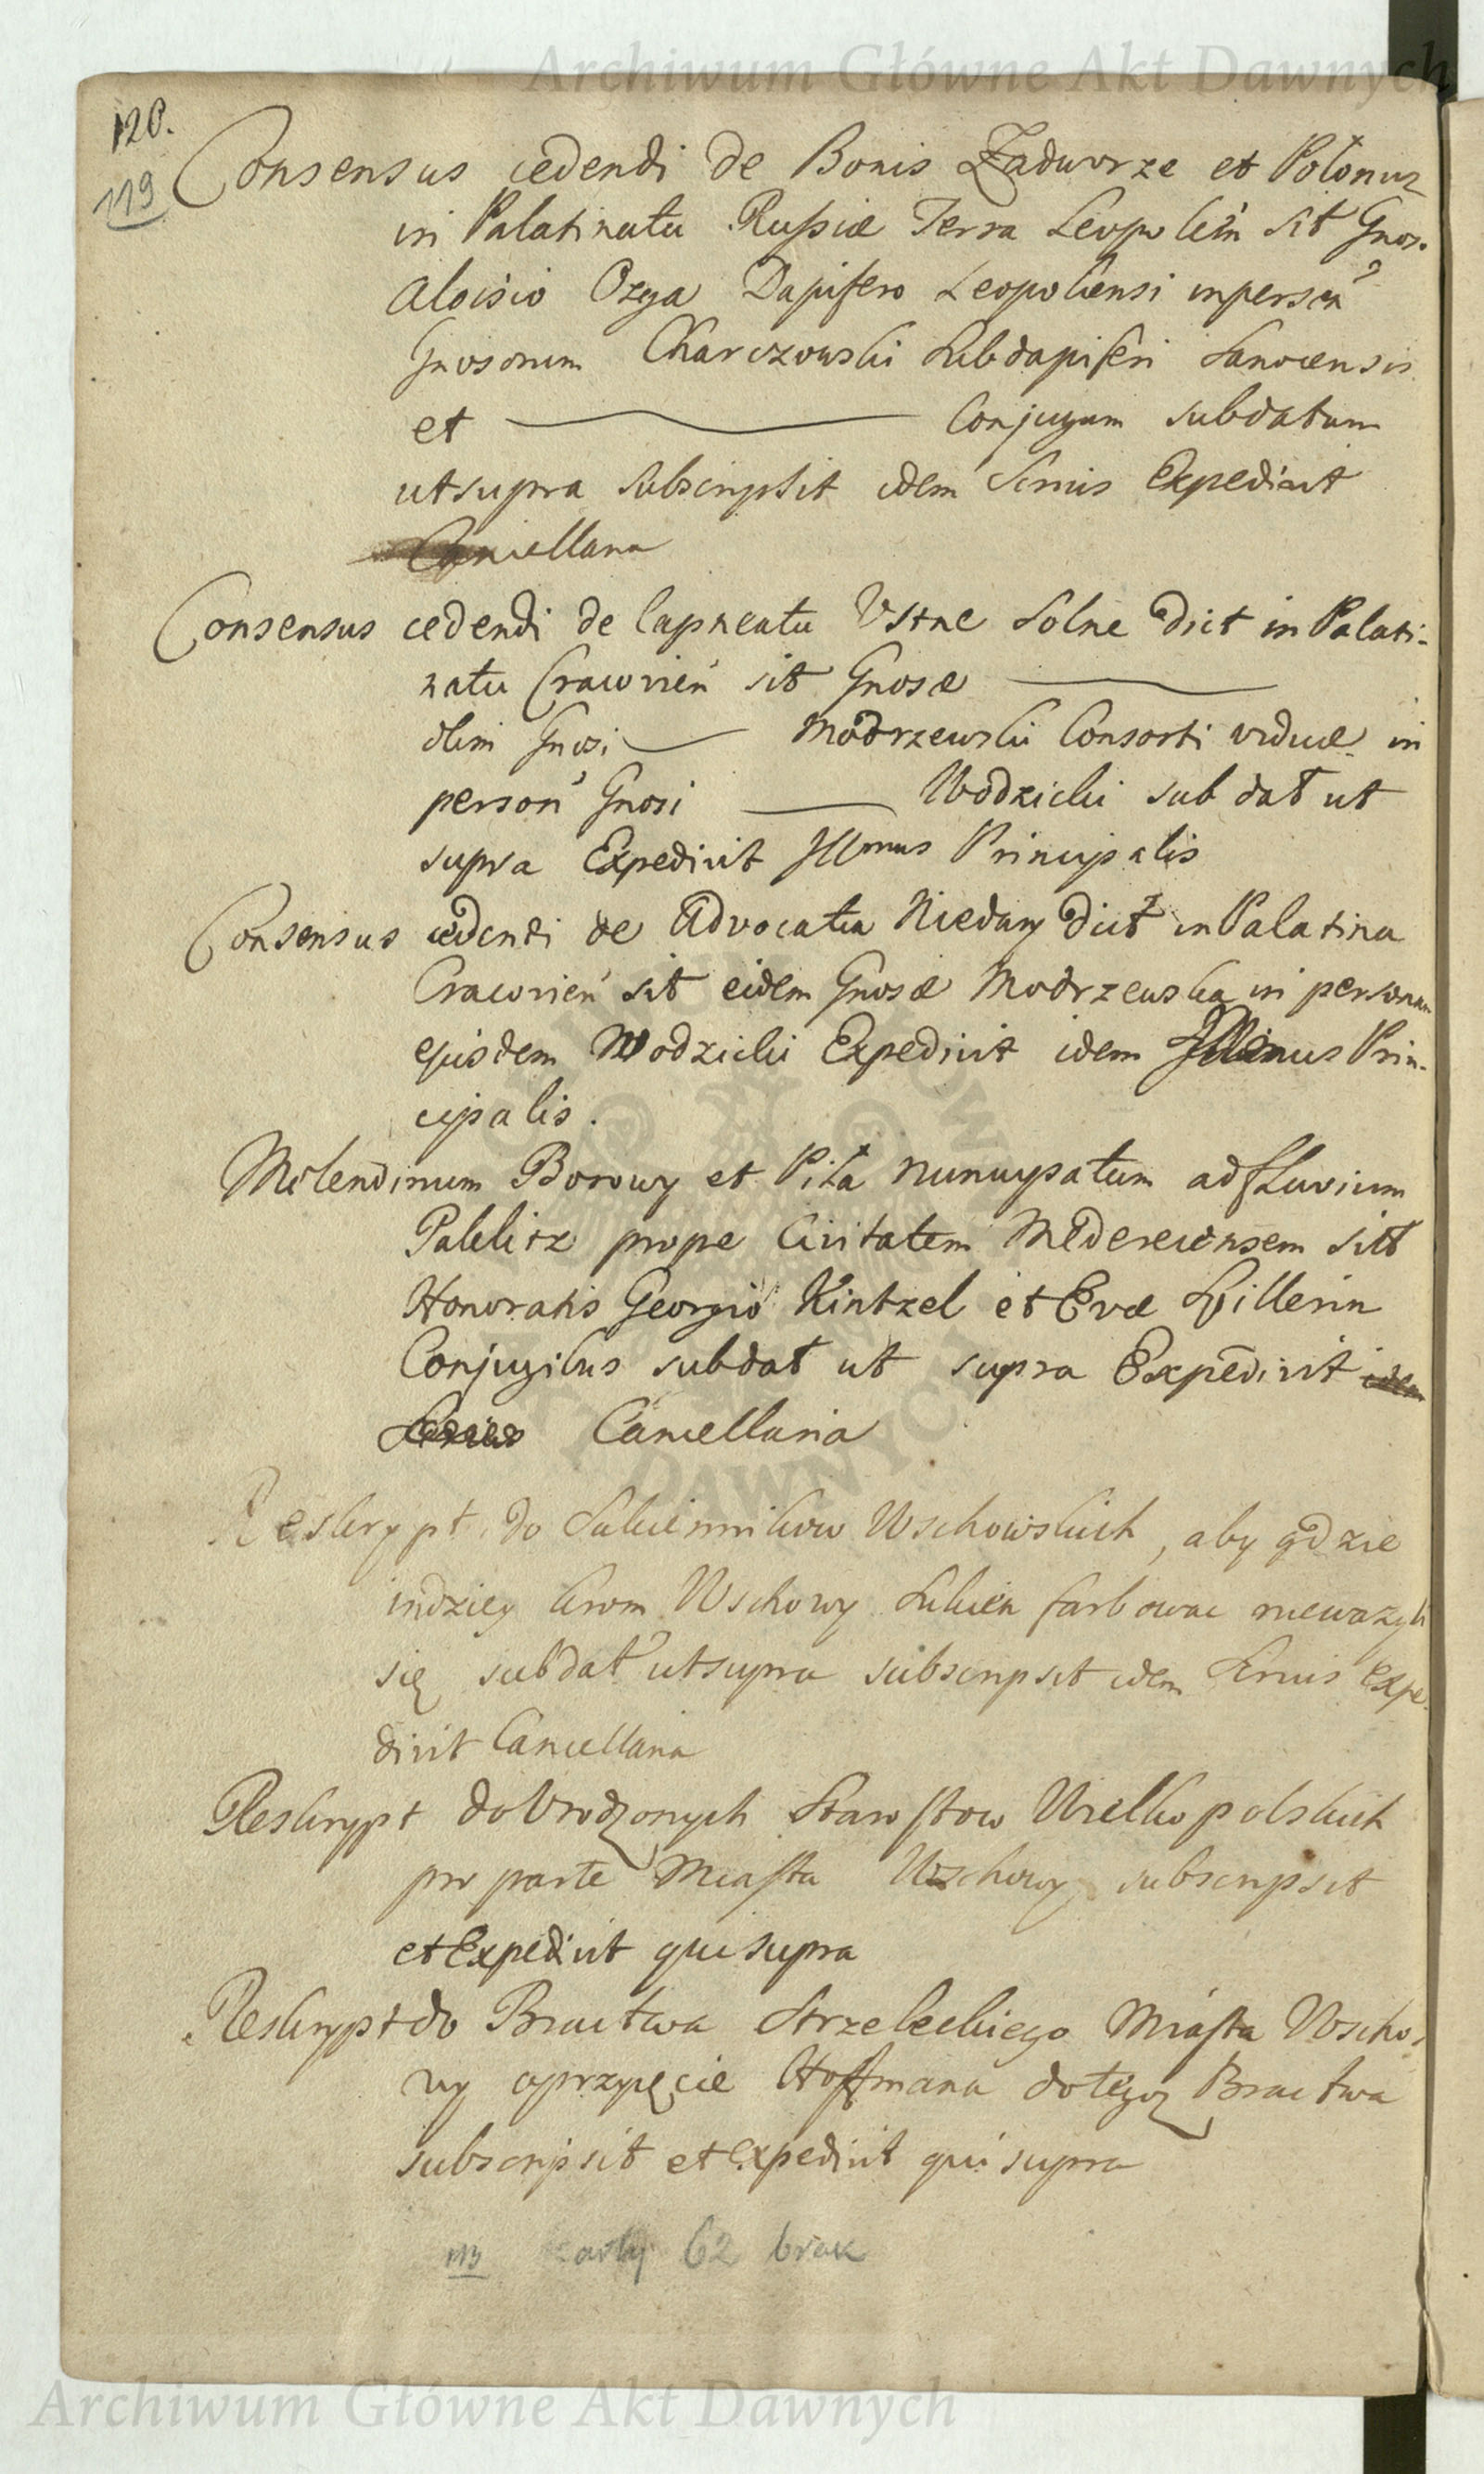 Archiwum Główne Akt Dawnych
120.
119
Consensus cedendi de Bonis Zadworze et Polonicz
in Palatinatu Russiæ Terra Leopolien̄ sit Gnos.
Aloisio Ozga Dapifero Leopoliensi in person̄
Gnosorum Charczowski Subdapiferi Sanocensis
et Conjugum sub datum
ut supra subscripsit idem Srmus Expedivit
Cancellaria
Consensus cedendi de Capneatu Ustne Solne dict in Palati-
natu Cracovien̄ sit Gnosæ
olim Gnosi Modrzewski Consorti viduæ in
person̄ Gnosi Wodzicki sub dat ut
supra Expedivit Illmus Principalis
Consensus cedendi de Advocatia Niedary dict in Palatina
Cracovien̄ sit eidem Gnosæ Modrzewska in personam
ejusdem Wodzicki Expedivit idem Illmus Prin-
cipalis.
Molendinum Borowy et Piła nuncupatum ad fluvium
Paklitz prope Civitatem Mederecensem sitt
Honoratis Georgio Kintzel et Evæ Hillerin
Conjugibus sub dat ut supra Expedivit idem
Srmus Cancellaria
Reskrypt do Sukiennikow Wschowskich, aby gdzie
indziey krom Wschowy Sukien farbowac niewazyli
się sub dat ut supra subscripsit idem Srmus Expe
divit Cancellaria
Reskrypt do Urodzonych Starostow Wielkopolskich
pro parte Miasta Wschowy subscripsit
et Expedivit qui supra
Reskrypt do Bractwa Strzeleckiego Miasta Wscho-
wy o przyięcie Hoffmana do tegoz Bractwa
subscripsit et expedivit qui supra
karty 62 brak
Archiwum Główne Akt Dawnych